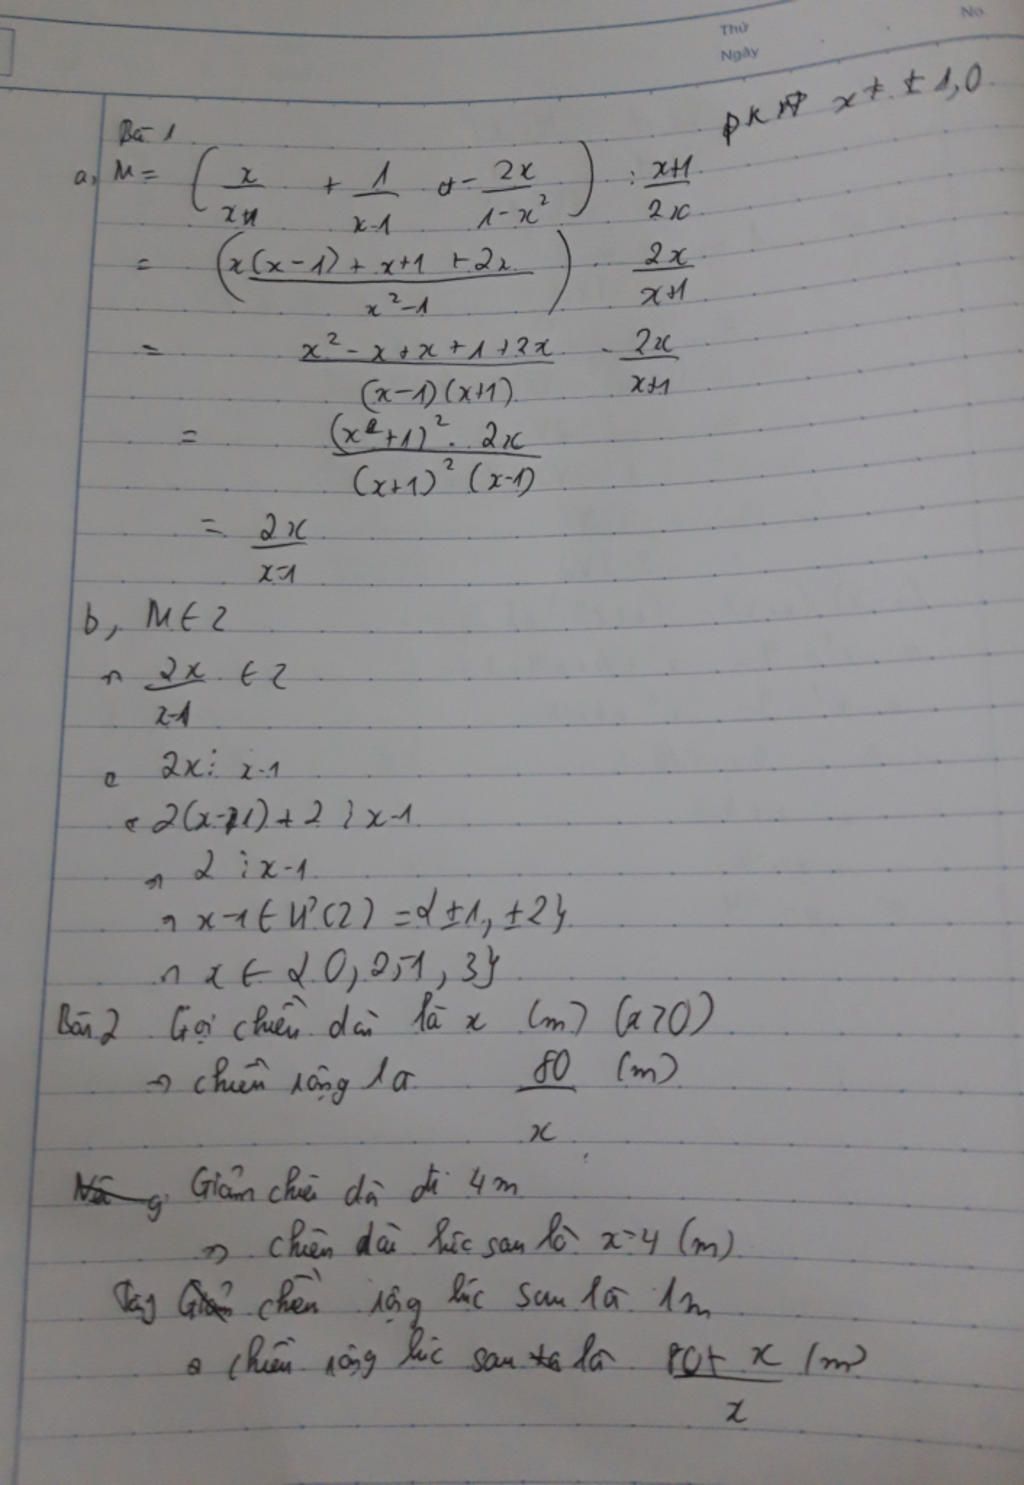 No.
Thứ
Ngày
đkxđ x ≠ ± 1,0
Bài 1
a, M = ( x/(x+1) + 1/(x-1) - 2x/(1-x²) ) : (x+1)/2x
= ( (x(x-1) + x+1 + 2x)/(x²-1) ) . 2x/(x+1)
= (x² - x + x + 1 + 2x)/((x-1)(x+1)) . 2x/(x+1)
= ((x+1)² . 2x)/((x+1)² (x-1))
= 2x/(x-1)
b, M ∈ Z
⇒ 2x/(x-1) ∈ Z
2x ⋮ x-1
2(x-1) + 2 ⋮ x-1
⇒ 2 ⋮ x-1
⇒ x-1 ∈ Ư(2) = {±1, ±2}
⇒ x ∈ {0, 2, -1, 3}
Bài 2 Gọi chiều dài là x (m) (x>0)
⇒ chiều rộng là 80/x (m)
Giảm chiều dài đi 4m
⇒ chiều dài lúc sau là x-4 (m)
Tăng chiều rộng lúc sau là 1m
chiều rộng lúc sau là (80+x)/x (m)